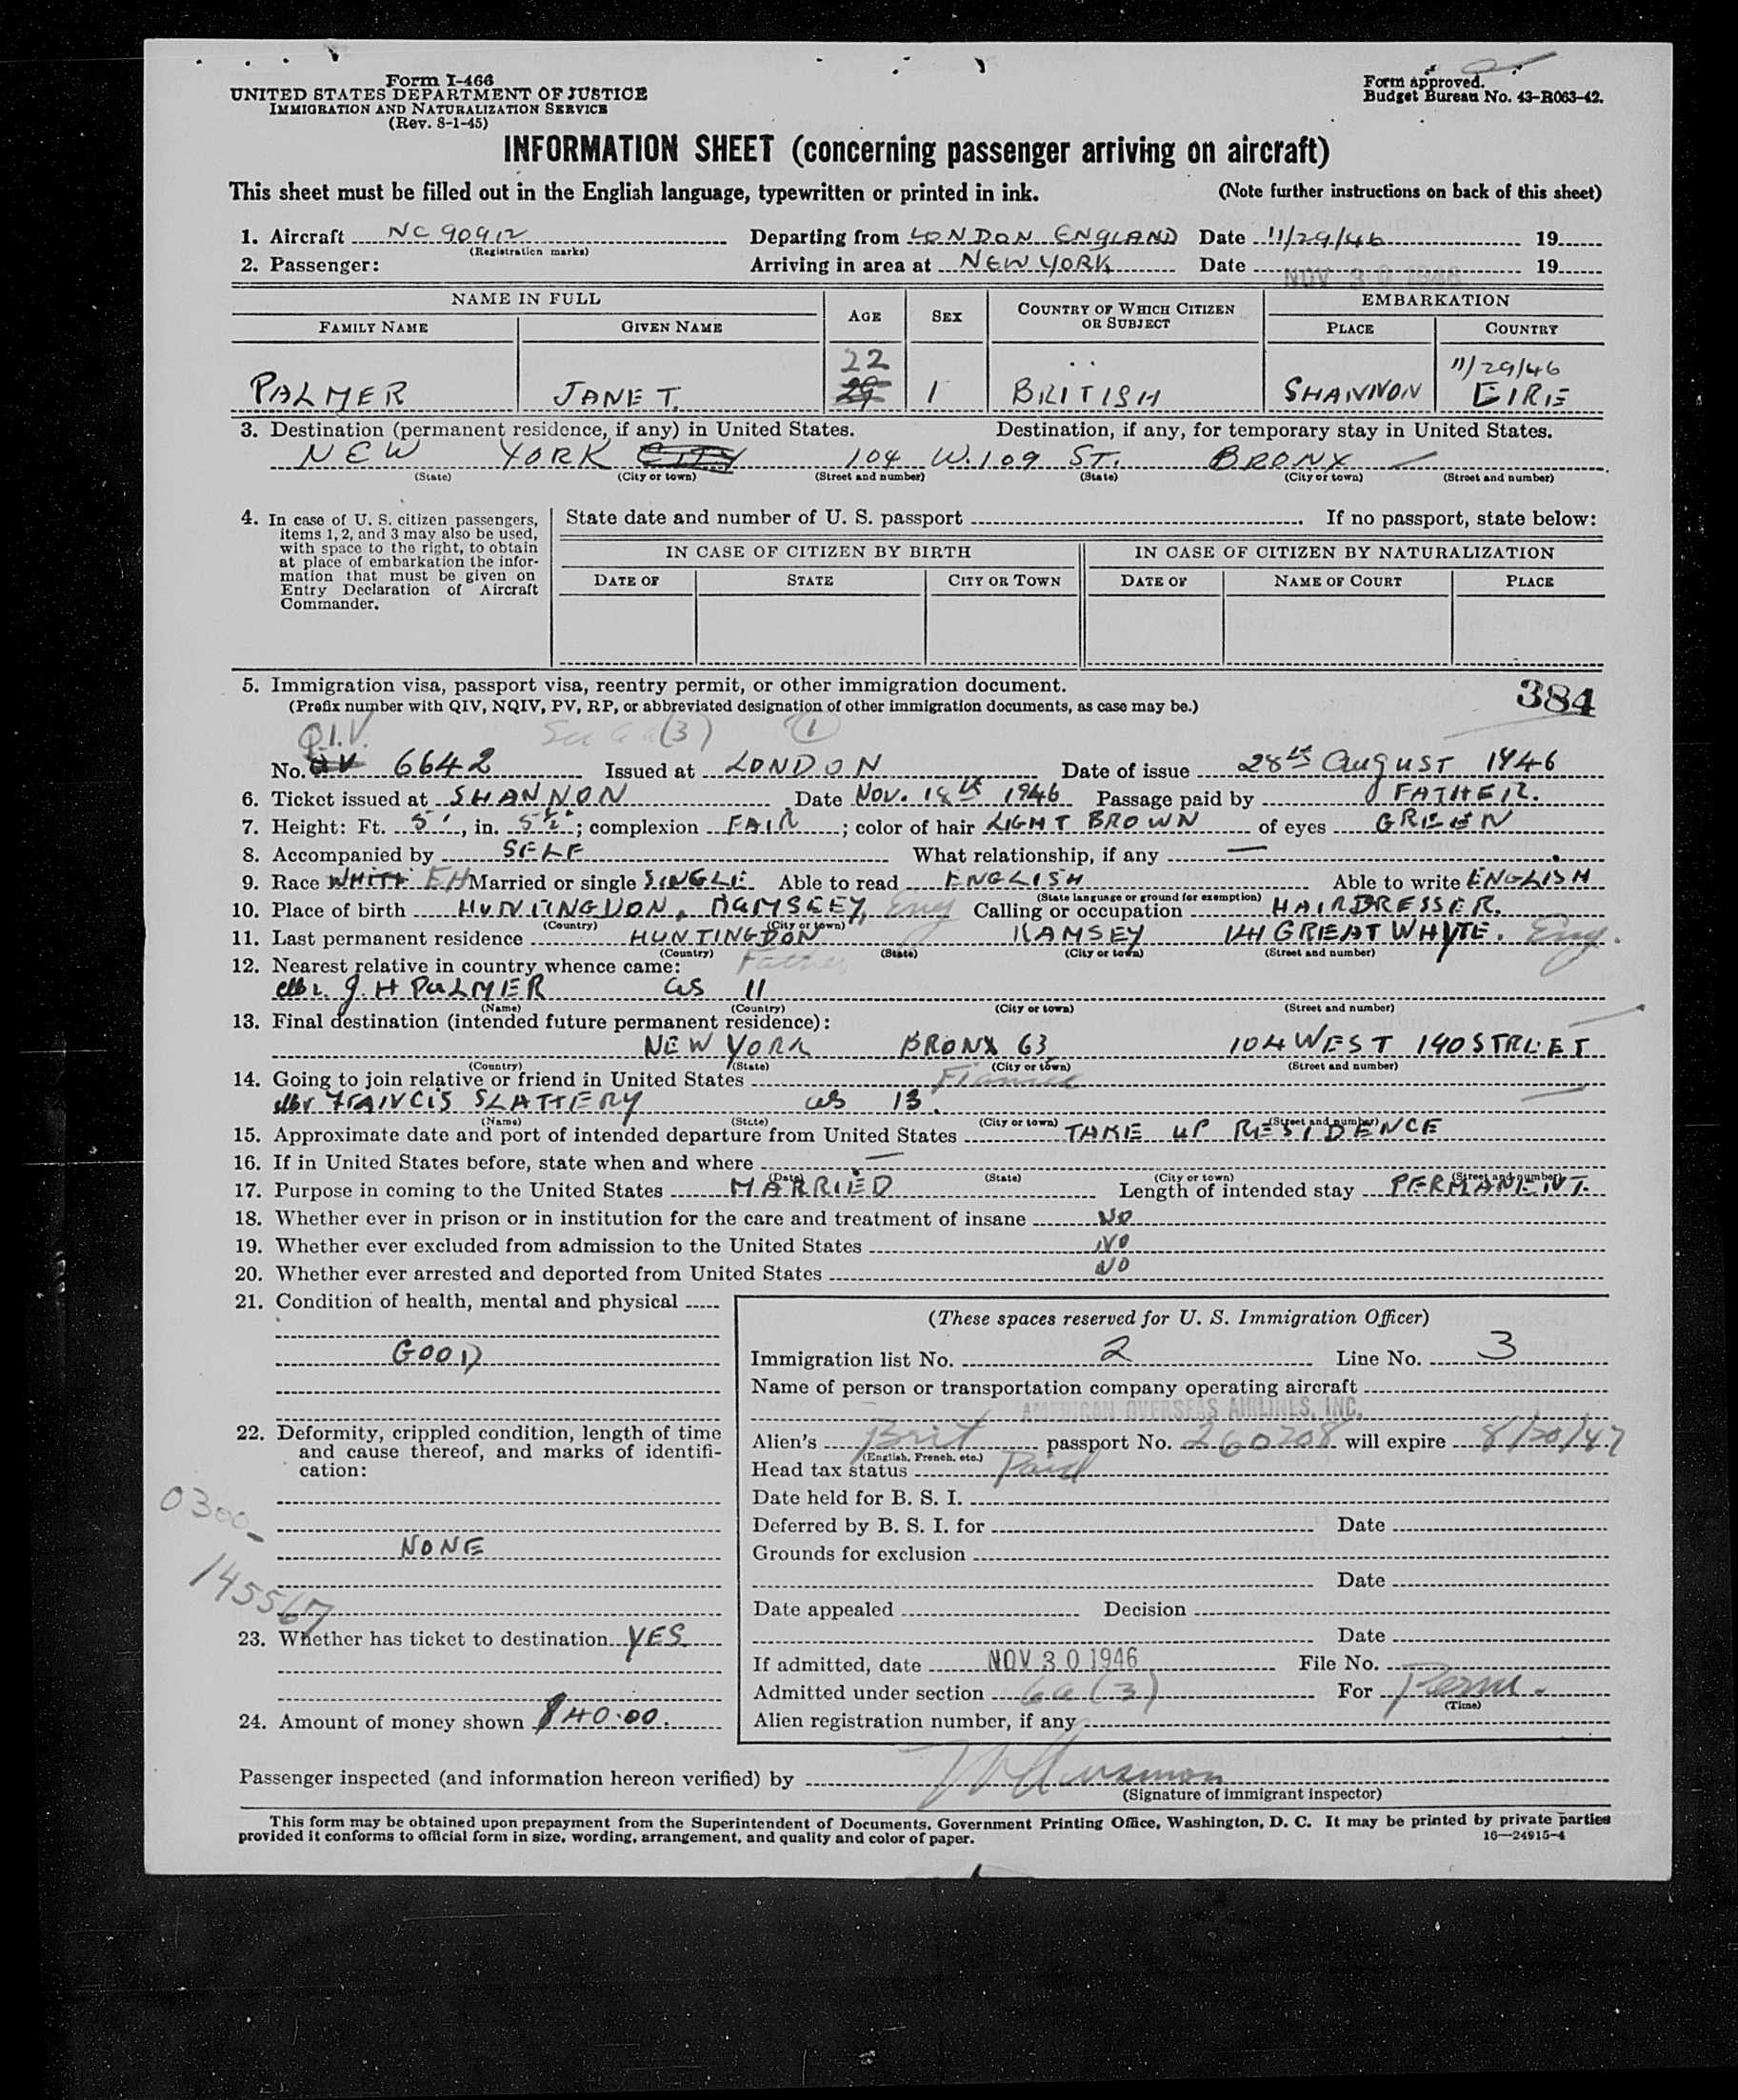 Form I-466
UNITED STATES DEPARTMENT OF JUSTICE
IMMIGRATION AND NATURALIZATION SERVICE
(Rev. 8-1-45)
Form approved.
Budget Bureau No. 43-R063-42.
INFORMATION SHEET (concerning passenger arriving on aircraft)
This sheet must be filled out in the English language, typewritten or printed in ink. (Note further instructions on back of this sheet)
1. Aircraft NC 90912 Departing from LONDON ENGLAND Date 11/29/46 19
(Registration marks)
2. Passenger: Arriving in area at NEW YORK Date NOV 30 1946 19
NAME IN FULL EMBARKATION
FAMILY NAME GIVEN NAME AGE SEX COUNTRY OF WHICH CITIZEN OR SUBJECT PLACE COUNTRY
22 11/29/46
PALMER JANET. 29 1 BRITISH SHANNON EIRE
3. Destination (permanent residence, if any) in United States. Destination, if any, for temporary stay in United States.
NEW YORK CITY 104 W. 109 ST. BRONX
(State) (City or town) (Street and number) (State) (City or town) (Street and number)
4. In case of U. S. citizen passengers,
items 1, 2, and 3 may also be used,
with space to the right, to obtain
at place of embarkation the infor-
mation that must be given on
Entry Declaration of Aircraft
Commander.
State date and number of U. S. passport If no passport, state below:
IN CASE OF CITIZEN BY BIRTH IN CASE OF CITIZEN BY NATURALIZATION
DATE OF STATE CITY OR TOWN DATE OF NAME OF COURT PLACE
5. Immigration visa, passport visa, reentry permit, or other immigration document.
384
(Prefix number with QIV, NQIV, PV, RP, or abbreviated designation of other immigration documents, as case may be.)
Q.I.V. (3) 1
No. QV 6642 Issued at LONDON Date of issue 28th August 1946
6. Ticket issued at SHANNON Date Nov. 18th 1946 Passage paid by FATHER.
7. Height: Ft. 5', in. 5½"; complexion FAIR; color of hair LIGHT BROWN of eyes GREEN
8. Accompanied by SELF What relationship, if any —
9. Race WHITE EH Married or single SINGLE Able to read ENGLISH Able to write ENGLISH
(State language or ground for exemption)
10. Place of birth HUNTINGDON, RAMSEY, Eng Calling or occupation HAIRDRESSER.
(Country) (City or town)
11. Last permanent residence HUNTINGDON RAMSEY 141 GREAT WHYTE. Eng.
(Country) (State) (City or town) (Street and number)
12. Nearest relative in country whence came: Father
Mr. J. H PALMER as 11
(Name) (Country) (City or town) (Street and number)
13. Final destination (intended future permanent residence):
NEW YORK BRONX 63 104 WEST 190 STREET
(Country) (State) (City or town) (Street and number)
14. Going to join relative or friend in United States Fiancee
Mr FRANCIS SLATTERY as 13.
(Name) (State) (City or town) (Street and number)
15. Approximate date and port of intended departure from United States TAKE UP RESIDENCE
16. If in United States before, state when and where —
(Date) (State) (City or town) (Street and number)
17. Purpose in coming to the United States MARRIED Length of intended stay PERMANENT.
18. Whether ever in prison or in institution for the care and treatment of insane NO
19. Whether ever excluded from admission to the United States NO
20. Whether ever arrested and deported from United States NO
21. Condition of health, mental and physical
GOOD
22. Deformity, crippled condition, length of time
and cause thereof, and marks of identifi-
cation:
0300-
NONE
145567
23. Whether has ticket to destination YES
24. Amount of money shown $40.00.
(These spaces reserved for U. S. Immigration Officer)
Immigration list No. 2 Line No. 3
Name of person or transportation company operating aircraft
AMERICAN OVERSEAS AIRLINES, INC.
Alien's Brit passport No. 260208 will expire 8/20/47
(English, French, etc.)
Head tax status Paid
Date held for B. S. I.
Deferred by B. S. I. for Date
Grounds for exclusion
Date
Date appealed Decision
Date
If admitted, date NOV 30 1946 File No.
Admitted under section 6a(3) For Perm.
(Time)
Alien registration number, if any
Passenger inspected (and information hereon verified) by
(Signature of immigrant inspector)
This form may be obtained upon prepayment from the Superintendent of Documents, Government Printing Office, Washington, D. C. It may be printed by private parties
provided it conforms to official form in size, wording, arrangement, and quality and color of paper. 16—24915-4